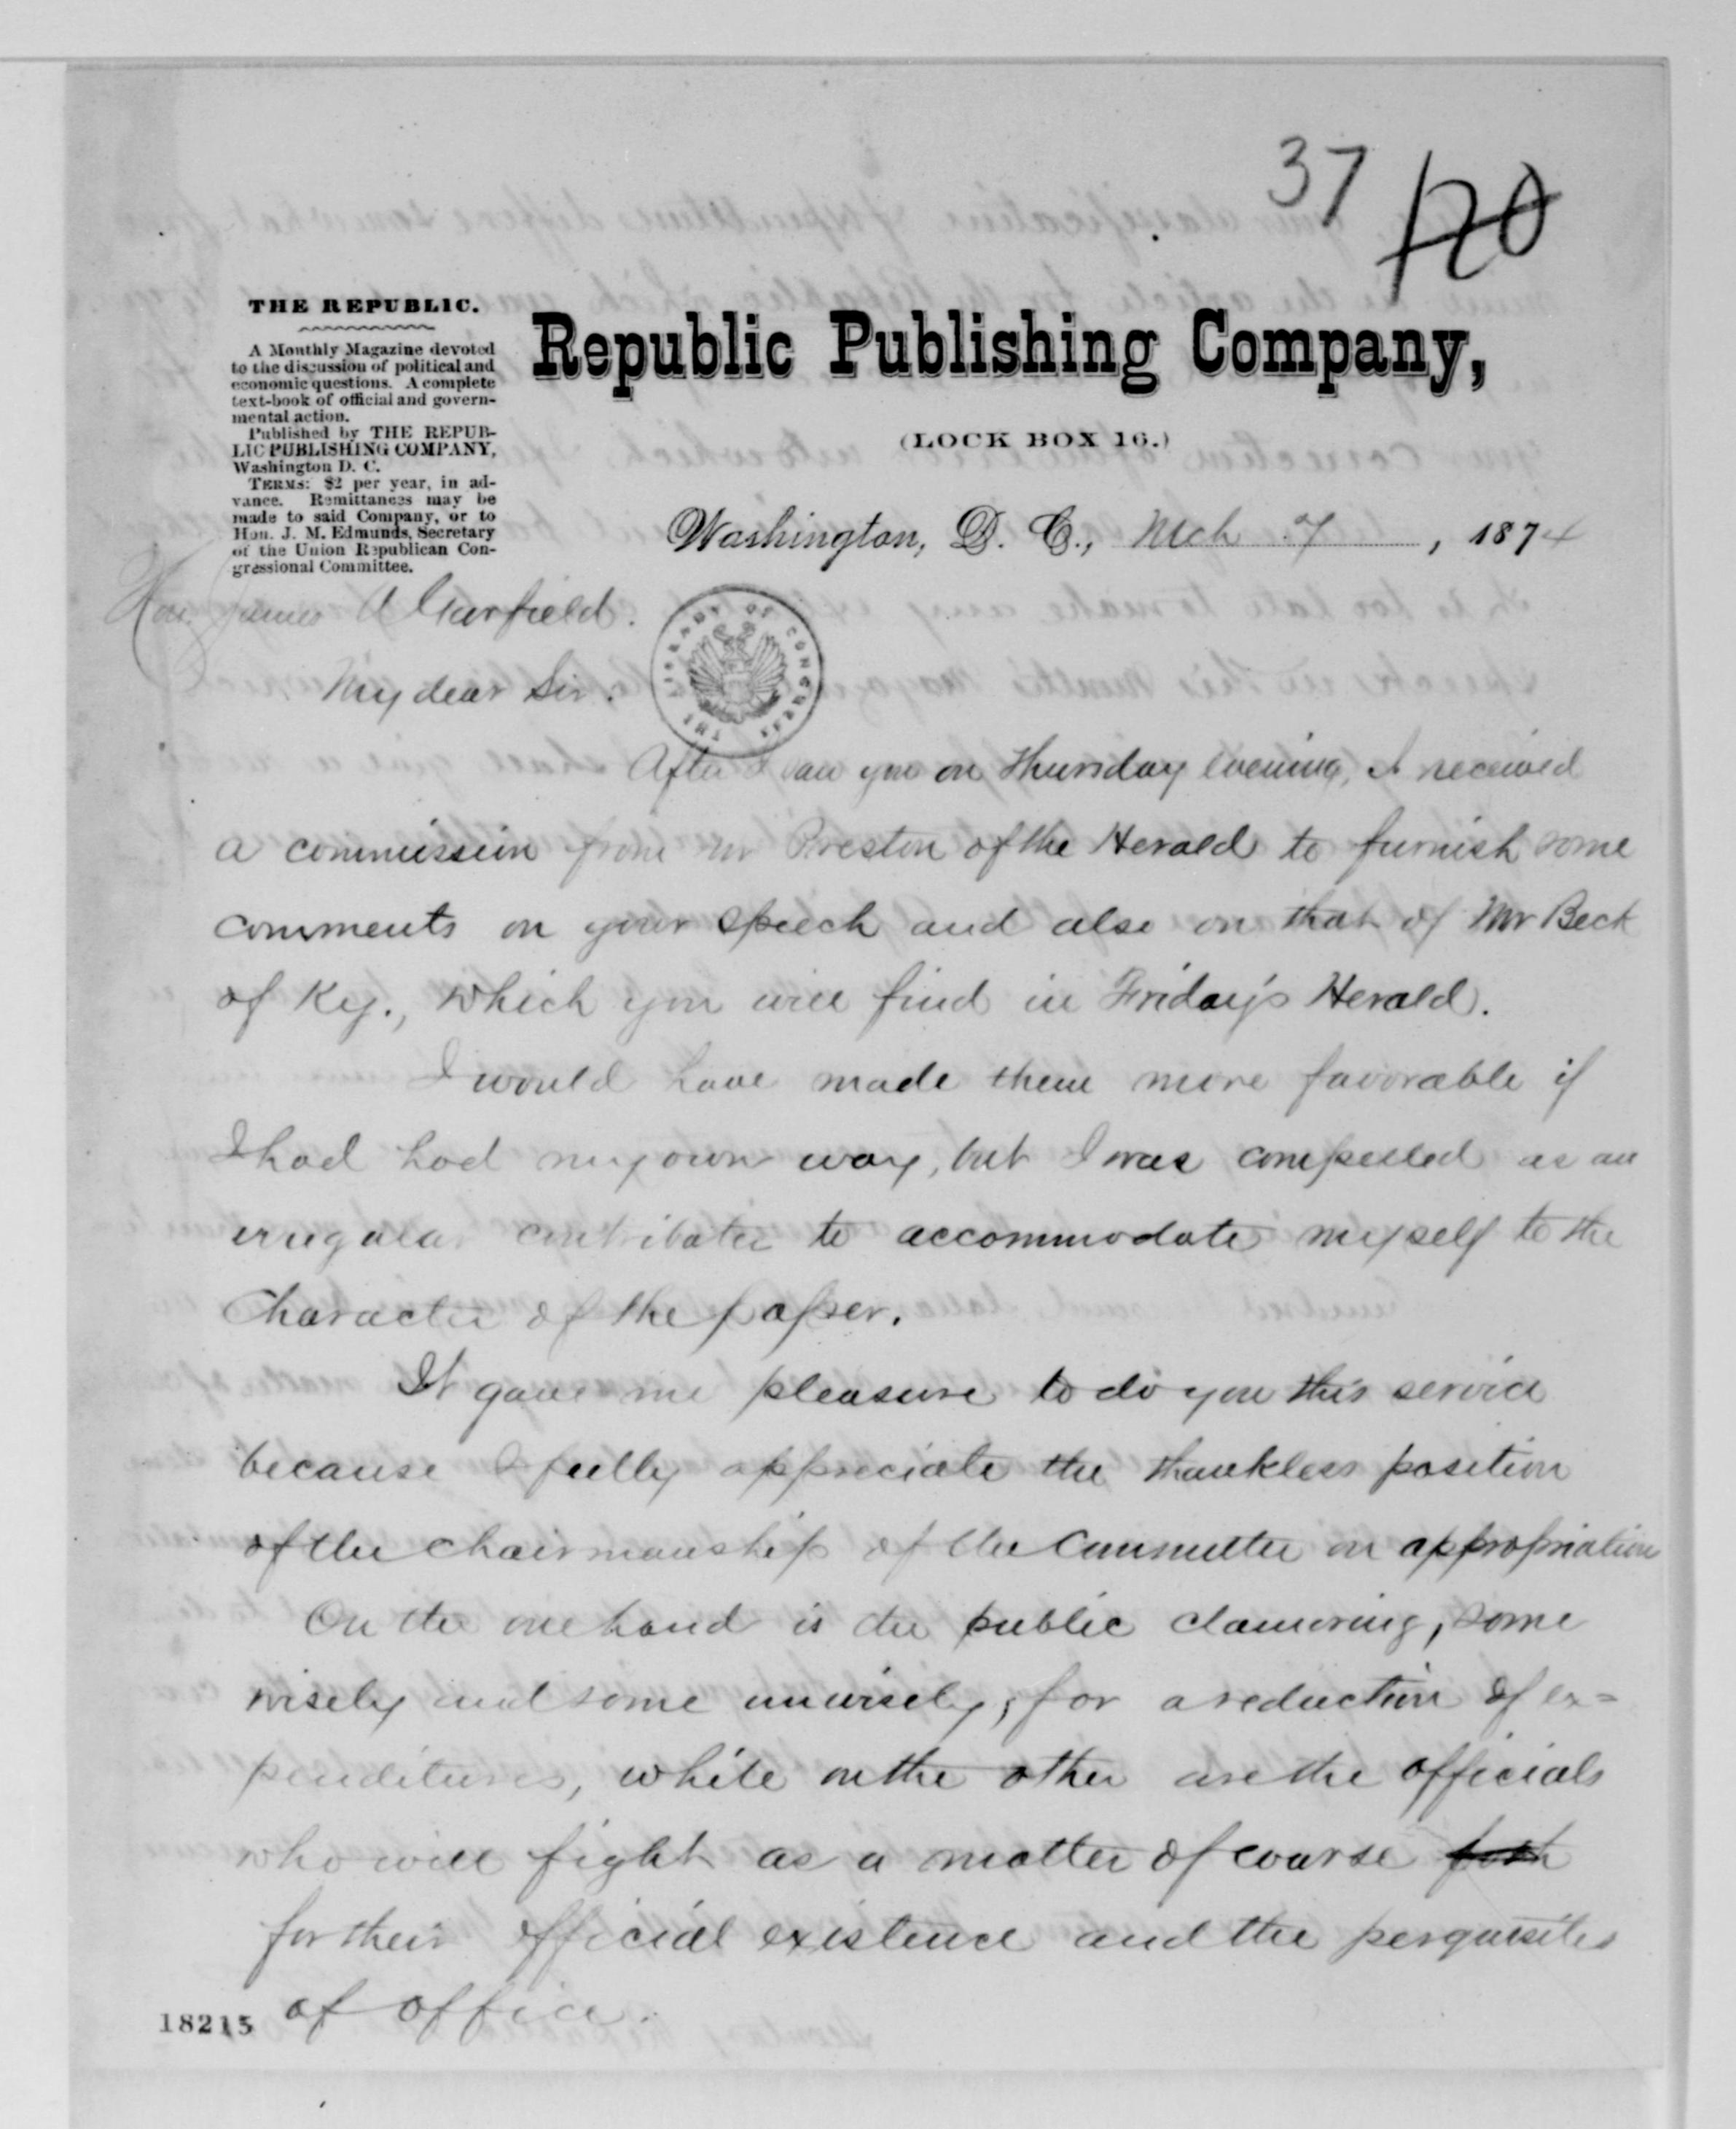 37
120
THE REPUBLIC.
A Monthly Magazine devoted
to the discussion of political and
economic questions. A complete
text-book of official and govern-
mental action.
Published by THE REPUB-
LIC PUBLISHING COMPANY,
Washington D. C.
TERMS: $2 per year, in ad-
vance. Remittances may be
made to said Company, or to
Hon. J. M. Edmunds, Secretary
of the Union Republican Con-
gressional Committee.
Republic Publishing Company,
(LOCK BOX 16.)
Washington, D. C., Mch 7, 1874
Hon. James A Garfield.
THE LIBRARY OF CONGRESS
My dear Sir.
After I saw you on Thursday evening, I received
a commission from Mr Preston of the Herald to furnish some
comments on your speech and also on that of Mr Beck
of Ky., which you will find in Friday's Herald.
I would have made them more favorable if
I had had my own way, but I was compelled as an
irregular contributor to accommodate myself to the
Character of the paper.
It gave me pleasure to do you this service
because I fully appreciate the thankless position
of the chairmanship of the Committee on appropriation
On the one hand is the public clamoring, some
wisely and some unwisely, for a reduction of ex=
penditures, while on the other are the officials
who will fight as a matter of course
for their official existence and the perquisites
of office.
18215